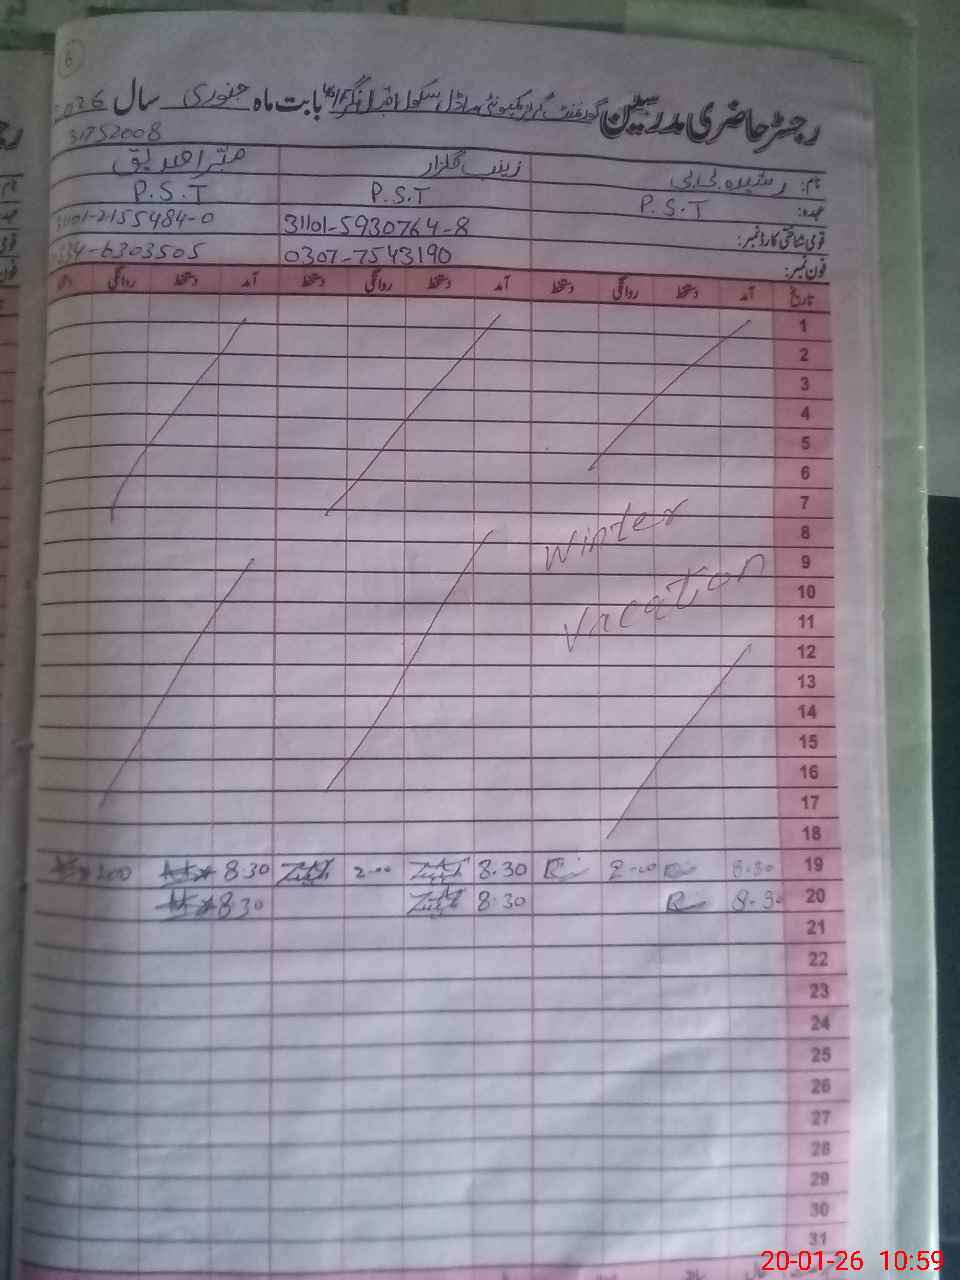 6
رجسٹر حاضری مدرسین گورنمنٹ گرلز کمیونٹی ماڈل سکول اقبال نگر بابت ماہ جنوری سال 2026
31752008
نام: رشیدہ بی بی زینب گلزار
عہدہ: P.S.T P.S.T P.S.T
قومی شناختی کارڈ نمبر: 31101-5930764-8 31101-2155484-0
فون نمبر: 0307-7543190 334-6303505
تاریخ آمد دستخط روانگی دستخط آمد دستخط روانگی دستخط آمد دستخط روانگی
1
2
3
4
5
6
7
8 Winter
9
10 Vacation
11
12
13
14
15
16
17
18
19 8.30 2.00 8.30 2.00 8.30 2.00
20 8.30 8.30 8.30
21
22
23
24
25
26
27
28
29
30
31
20-01-26 10:59